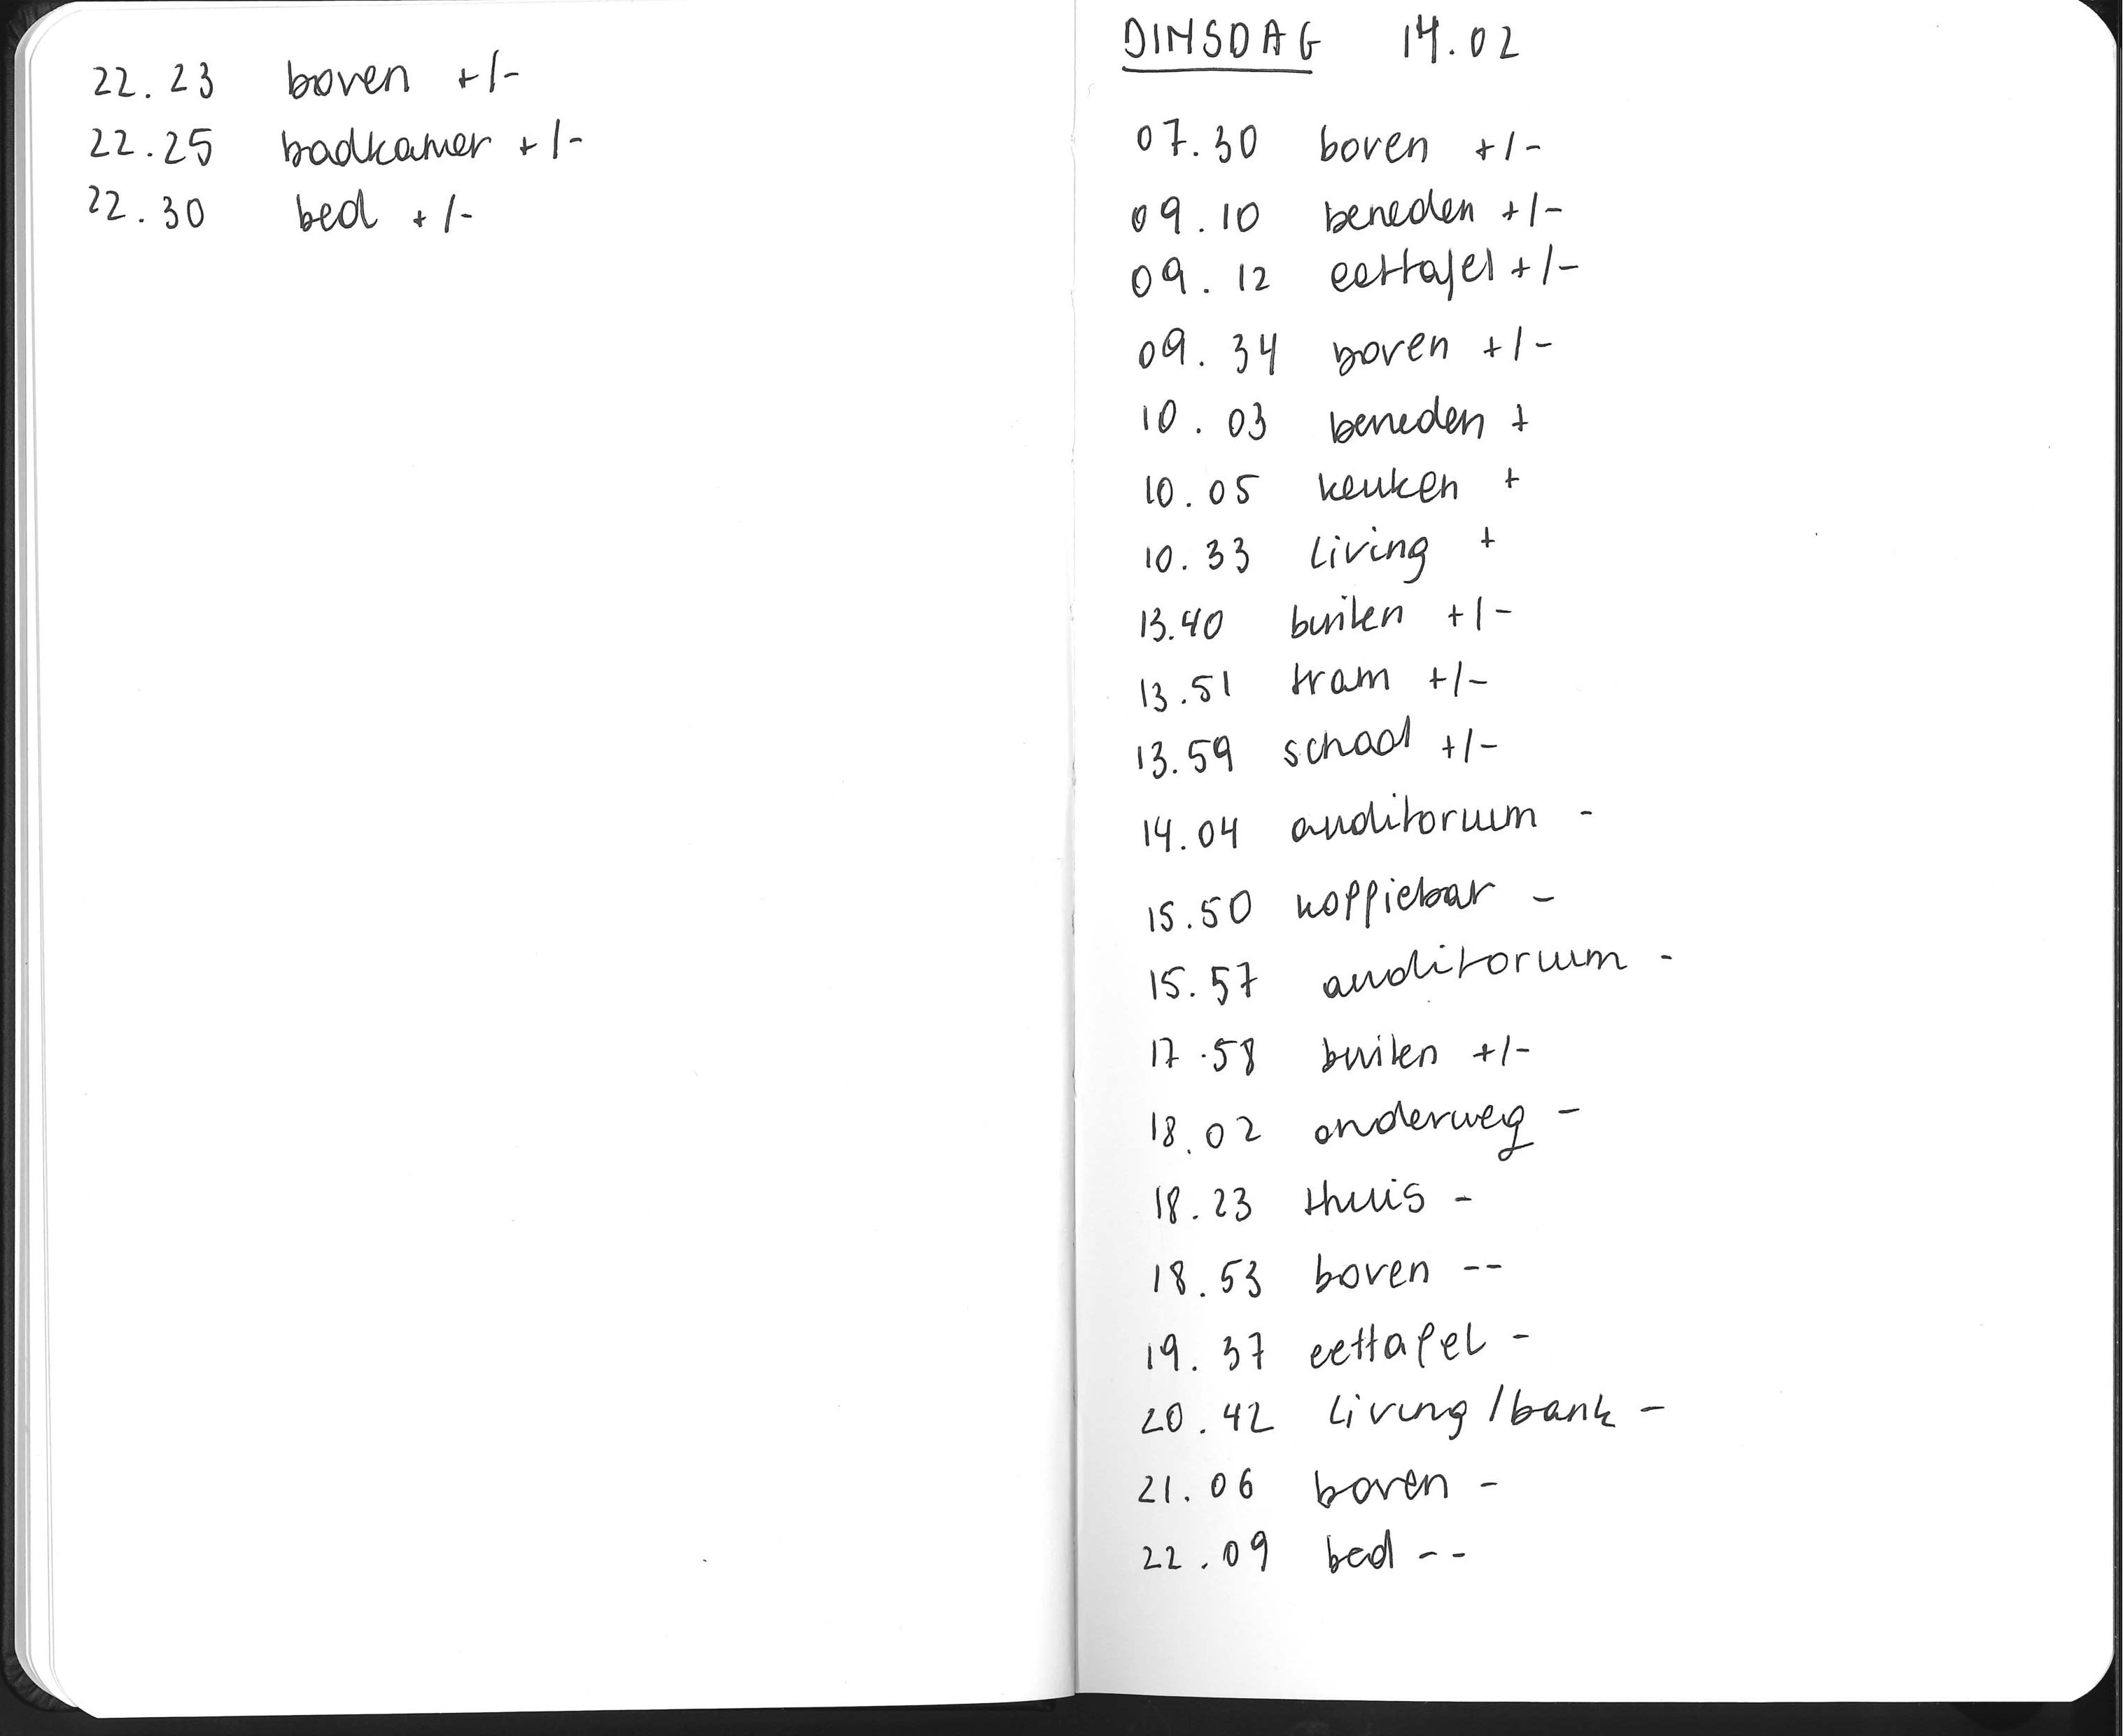 22.23 boven +/-
22.25 badkamer +/-
22.30 bed +/-
DINSDAG 14.02
07.30 boven +/-
09.10 beneden +/-
09.12 eettafel +/-
09.34 boven +/-
10.03 beneden +
10.05 keuken +
10.33 living +
13.40 buiten +/-
13.51 tram +/-
13.59 school +/-
14.04 auditorium -
15.50 koffiebar -
15.57 auditorium -
17.58 buiten +/-
18.02 onderweg -
18.23 thuis -
18.53 boven --
19.37 eettafel -
20.42 living/bank -
21.06 boven -
22.09 bed --